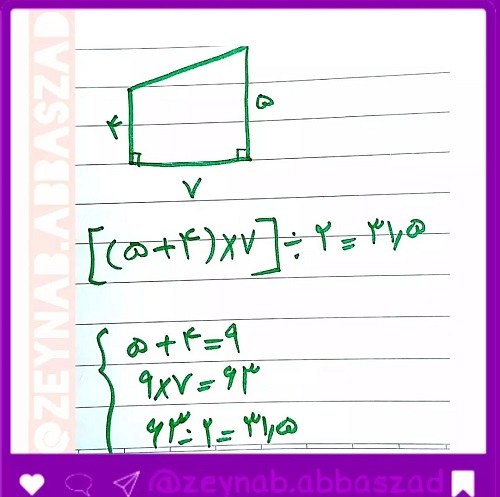 @ZEYNAB.ABBASZAD
۴
۵
۷
[(۵+۴)×۷]÷۲=۳۱,۵
۵+۴=۹
۹×۷=۶۳
۶۳÷۲=۳۱,۵
@zeynab.abbaszad